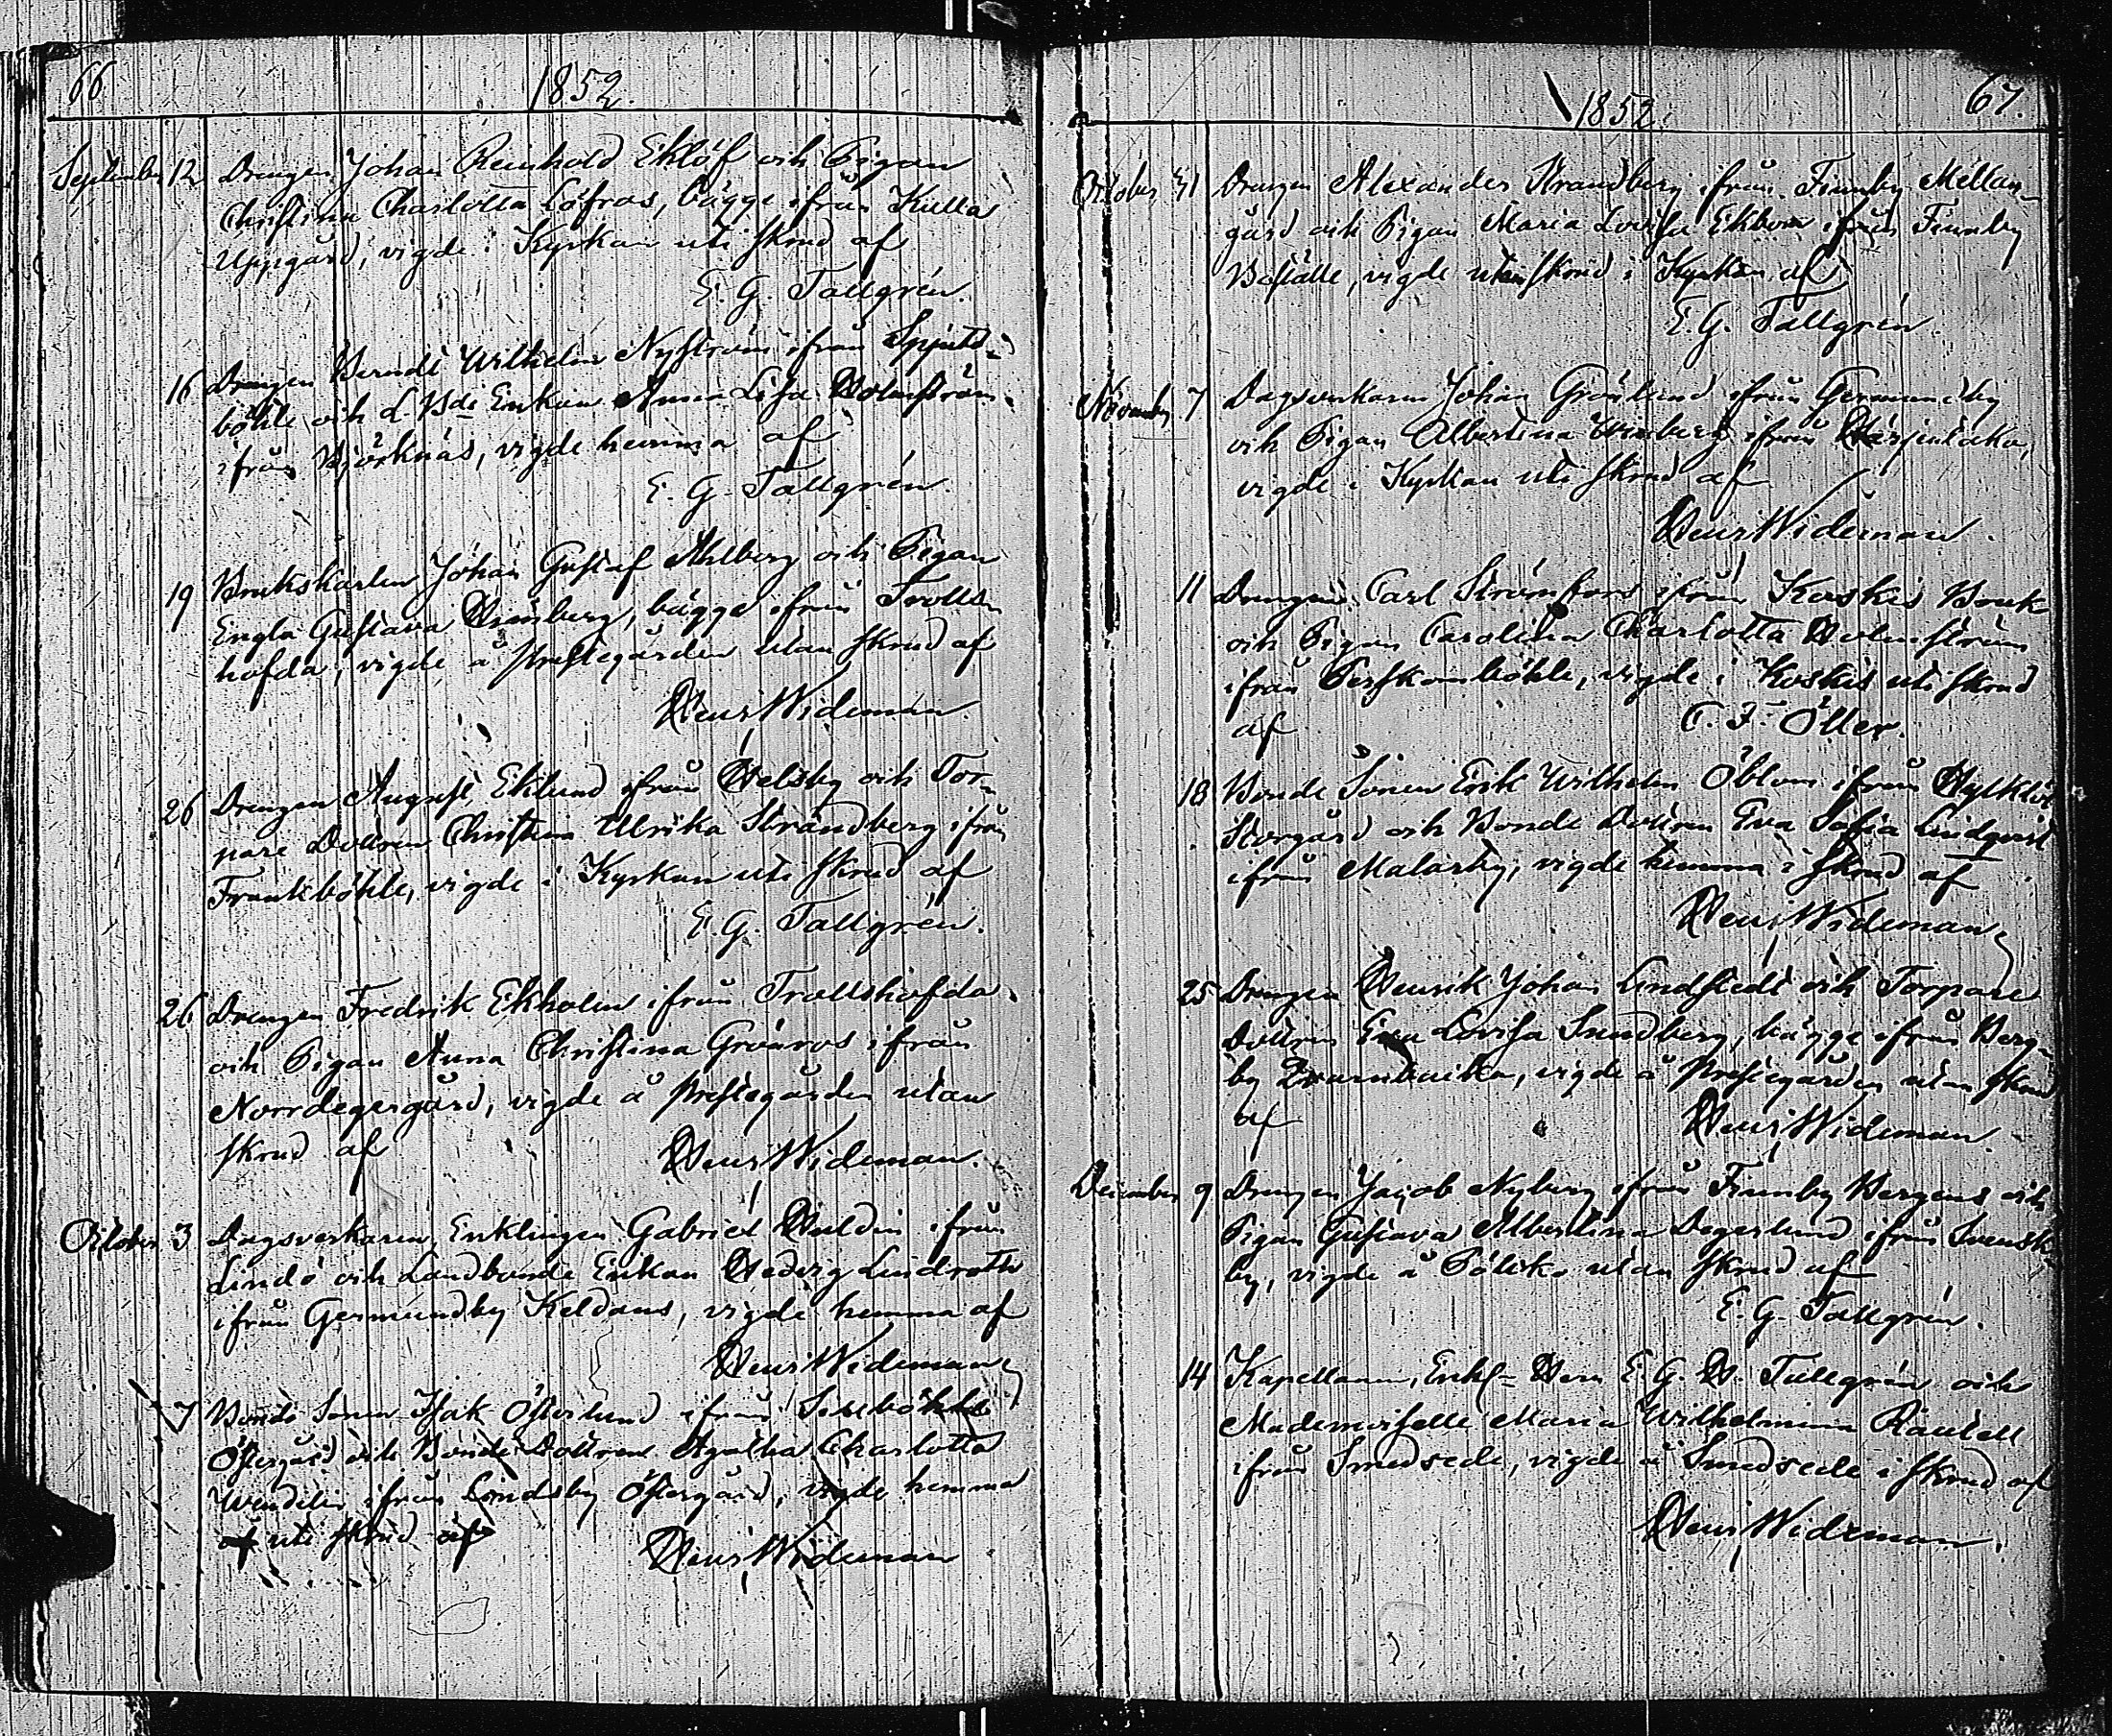 66
1852.
September 12 Drengen Johan Reinhold Eklöf och Pigan
Christina Charlotta Löfros, bägge ifrån Kulla
Uppgård, vigde i Kyrkan uti skrud af
E. G. Tallgrén.
16 Drengen Berndt Wilhelm Nyström ifrån Spjuts-
böhle och L Bdi Enkan Anna Lisa Holmström
ifrån Björknäs, vigde hemma af
E. G. Tallgrén.
19 Brukskarlen Johan Gustaf Ahlberg och Pigan
Engla Gustava Himberg, bägge ifrån Trolls-
hofda, vigde å Prestegården utan skrud af
Henr Wideman.
26 Drengen August Eklund ifrån Helsby och Tor-
pare Dottren Christina Ulrika Strandberg ifrån
Frankböhle, vigde i Kyrkan uti skrud af
E. G. Tallgrén.
26 Drengen Fredrik Ekholm ifrån Trollshofda
och Pigan Anna Christina Grönros ifrån
Norrdegergård, vigde å Prestegården utan
skrud af Henr Wideman.
October 3 Dagsverkaren, Enklingen Gabriel Huldin ifrån
Lindö och Landbonde Enkan Hedvig Lindroth
ifrån Germundby Keldans, vigde hemma af
Henr Wideman
7 Bonde Sonen Isak Österlund ifrån Sexböhle
Östergård och Bonde Dottren Agatha Charlotta
Wendelin ifrån Lindsby Östergård, vigde hemma
af uti skrud af Henr Wideman
1852.
67.
October 31 Drengen Alexander Strandberg ifrån Finnby Mellan-
gård och Pigan Maria Lovisa Ekbom ifrån Finnby
Boställe, vigde utan skrud i Kyrkan af
E. G. Tallgrén
November 7 Dagsverkaren Johan Grönlund ifrån Germundby
och Pigan Albertina ifrån
vigde i Kyrkan uti skrud af
Henr Wideman.
11 Drengen Carl Strömfors ifrån Koskis Bruk
och Pigan Carolina Charlotta Holmström
ifrån Perskomböhle, vigde i Koskis uti skrud
af C. F. Öller.
18 Bonde Sonen Erik Wilhelm Öblom ifrån
Storgård och Bonde Dottren Eva Sofia Lindqvist
ifrån Malarby, vigde hemma i skrud af
Henr Wideman
25 Drengen Henrik Johan Lindstedt och Torpare
Dottren Eva Lovisa Sundberg, bägge ifrån Berg-
by vigde å Prestegården utan skrud
af Henr Wideman
December 9 Drengen Jacob Nyberg ifrån Finnby Bergens och
Pigan Gustava Albertina Degerlund ifrån Svensk-
by, vigde å Pölikö utan skrud af
E. G. Tallgrén.
14 Kapellanen, Herr E. G. H. Tallgrén och
Mademoiselle Maria Wilhelmina Rautell
ifrån Smedsede, vigde å Smedsede i skrud af
Henr Wideman.